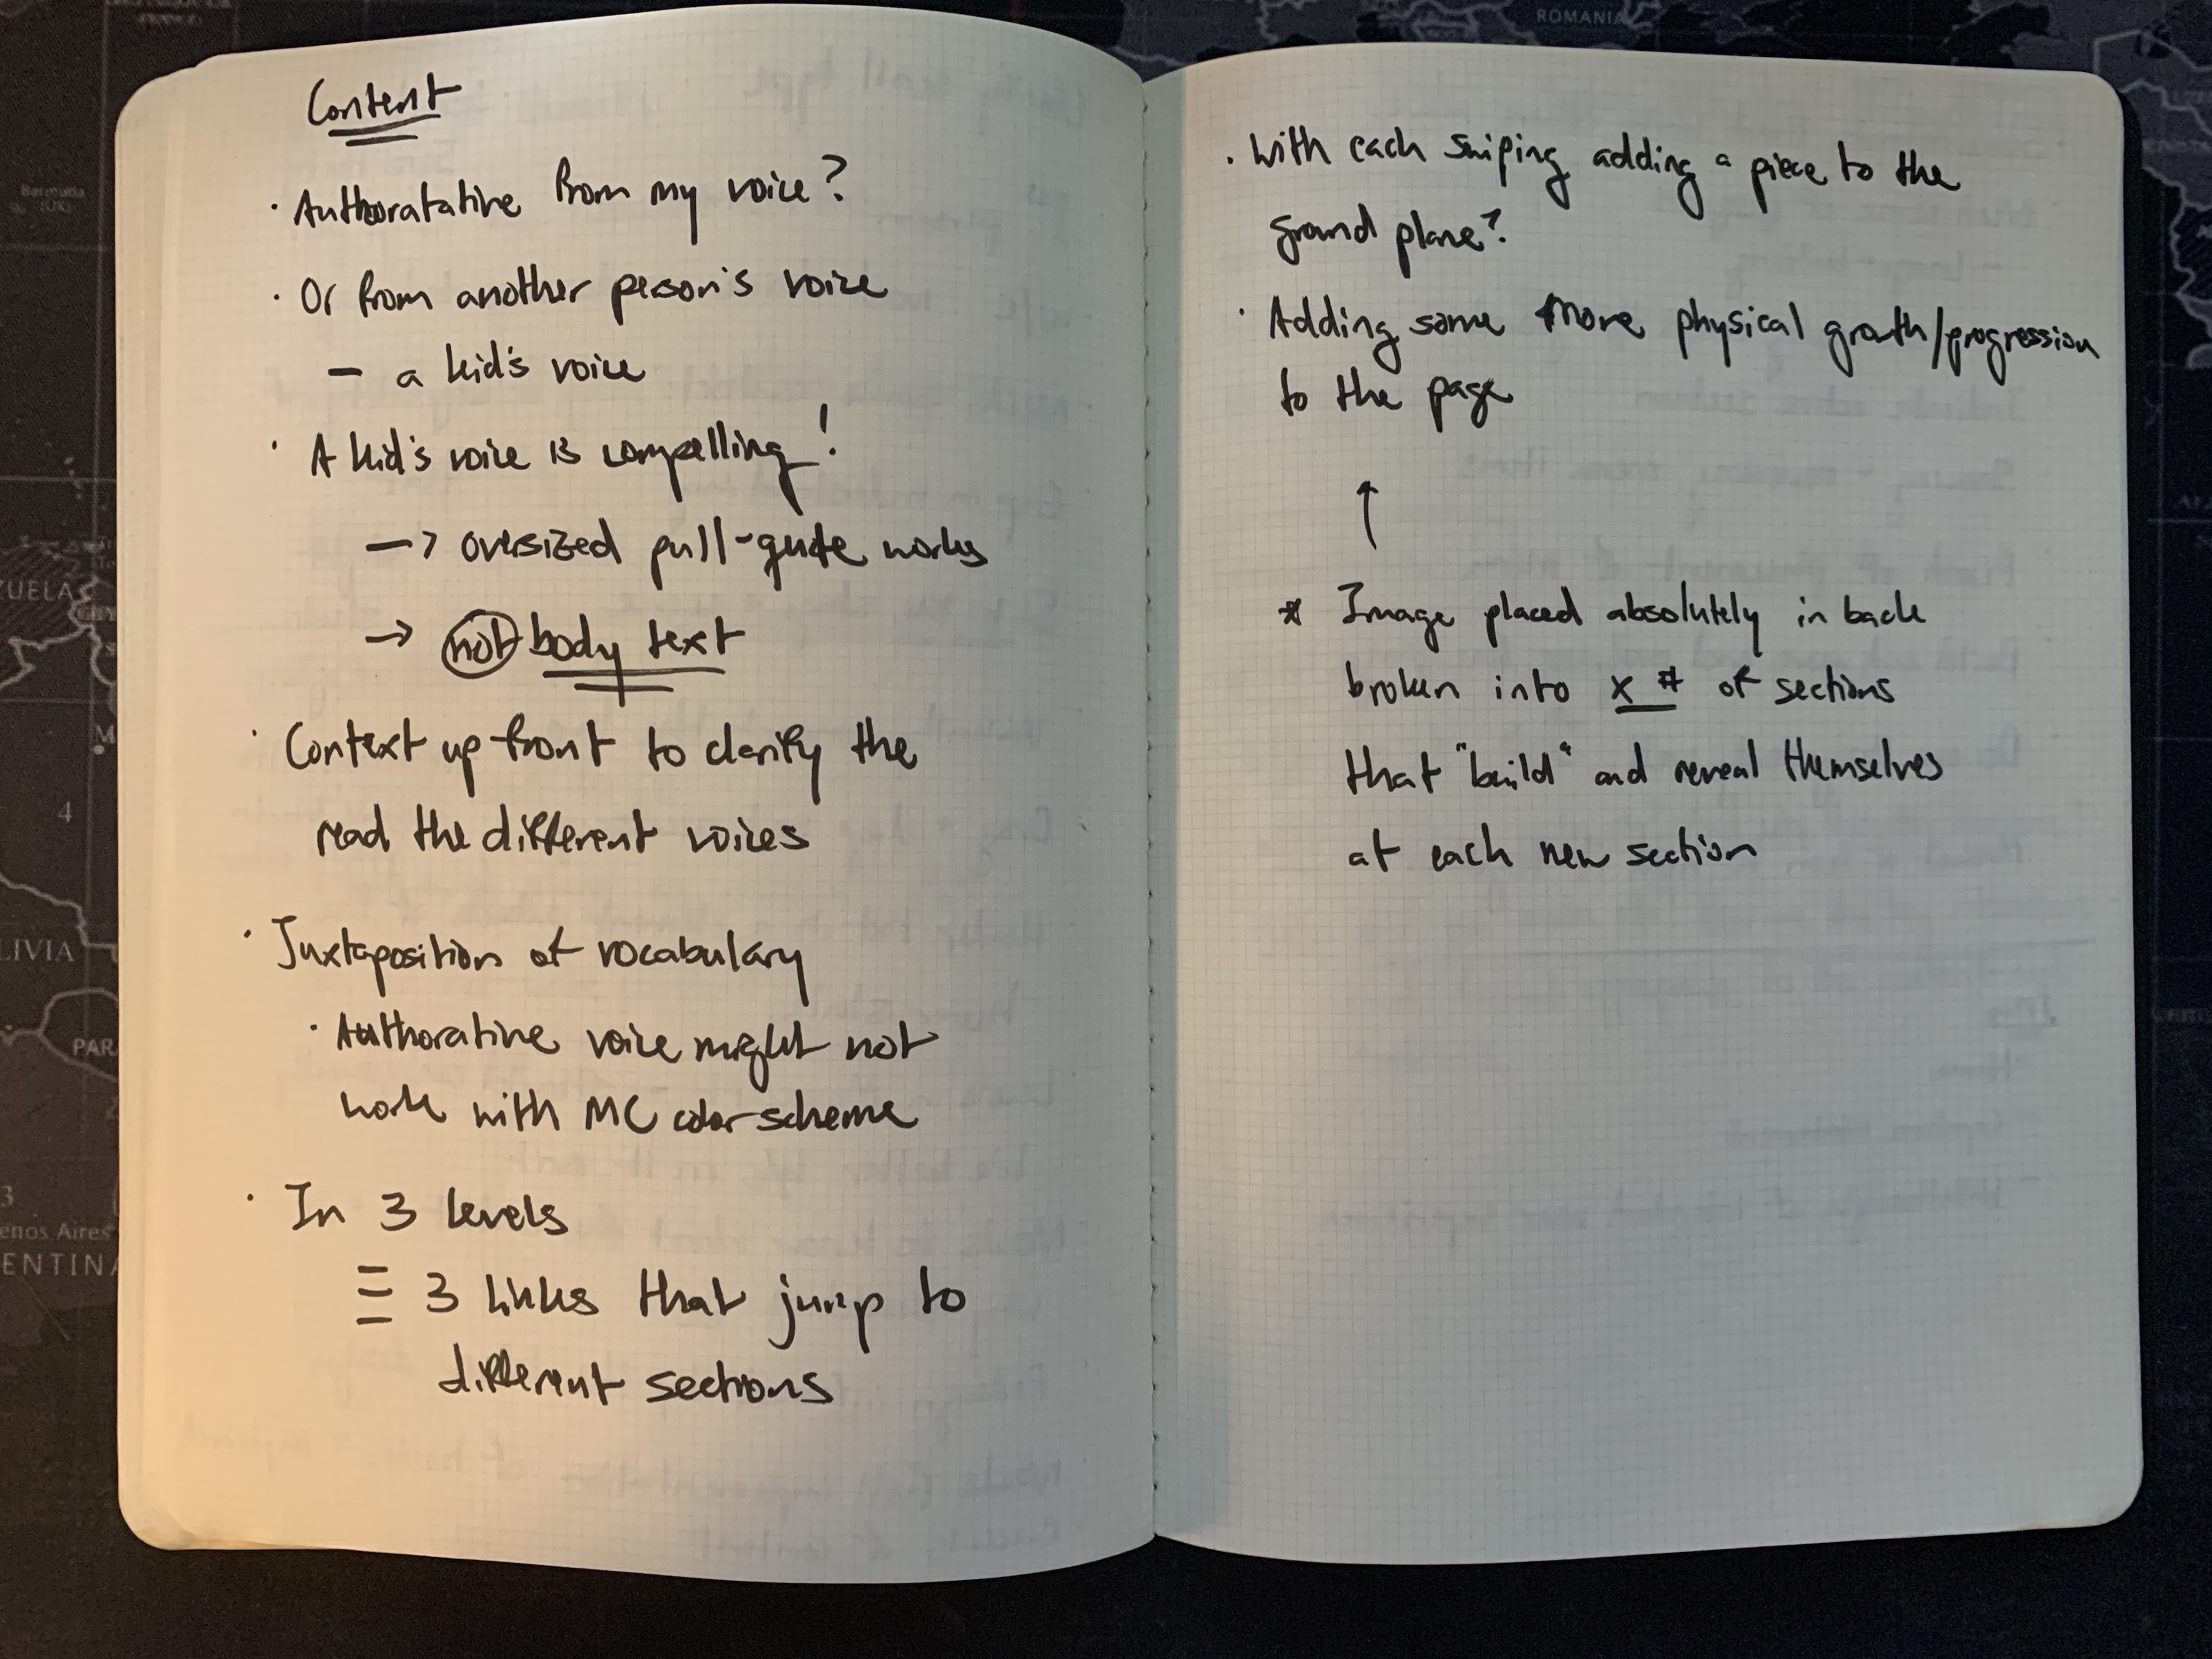 Content
· Authoratative from my voice?
· Or from another person's voice
— a kid's voice
· A kid's voice is compelling!
→ oversized pull-quote works
→ not body text
· Context up front to clarify the
read the different voices
· Juxtaposition of vocabulary
· Authorative voice might not
work with MC color scheme
· In 3 levels
3 links that jump to
different sections
· With each sniping adding a piece to the
ground plane?
· Adding some more physical growth/progression
to the page
↑
* Image placed absolutely in back
broken into x # of sections
that "build" and reveal themselves
at each new section
ROMANIA
Bermuda
(UK)
4
3